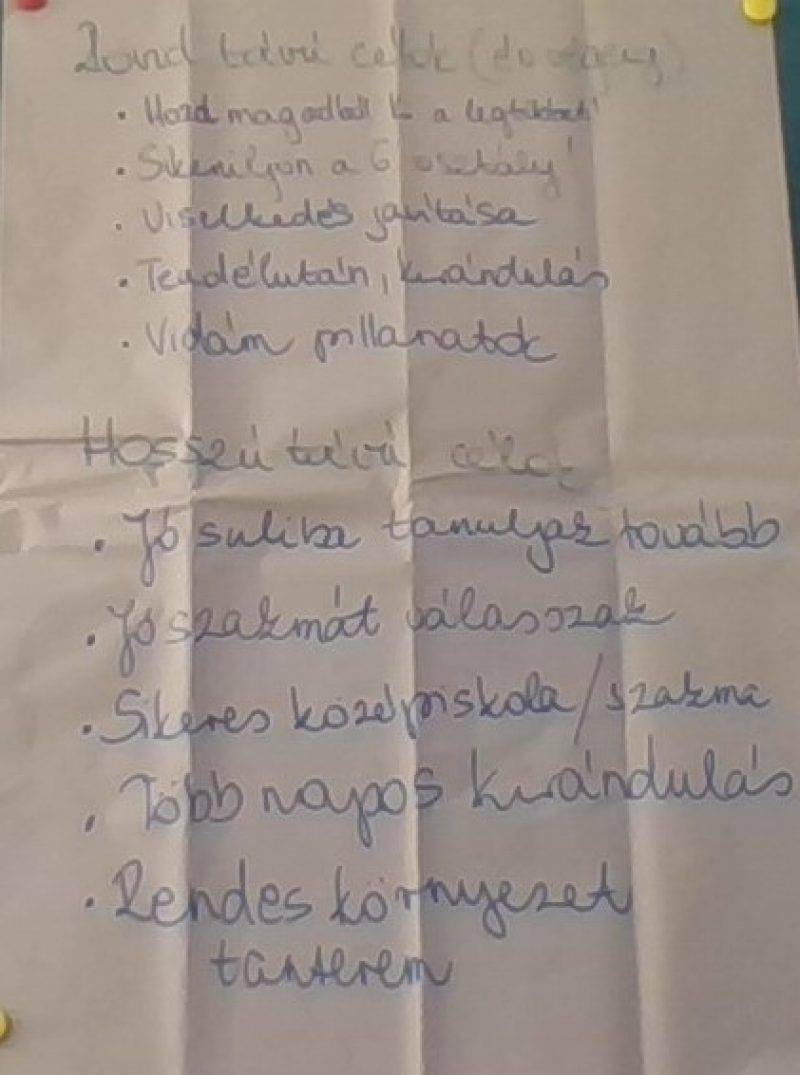 távú célok
• Hozd magadból ki a
• Sikerüljon a 6 osztály!
• Viselkedés javítása
• Teadélután, kirándulás
• Vidám pillanatok
Hosszú távú célok
• Jó suliba tanuljak tovább
• Jó szakmát válasszak
• Sikeres középiskola/szakma
• Több napos kirándulás
• Rendes környezet
tanterem